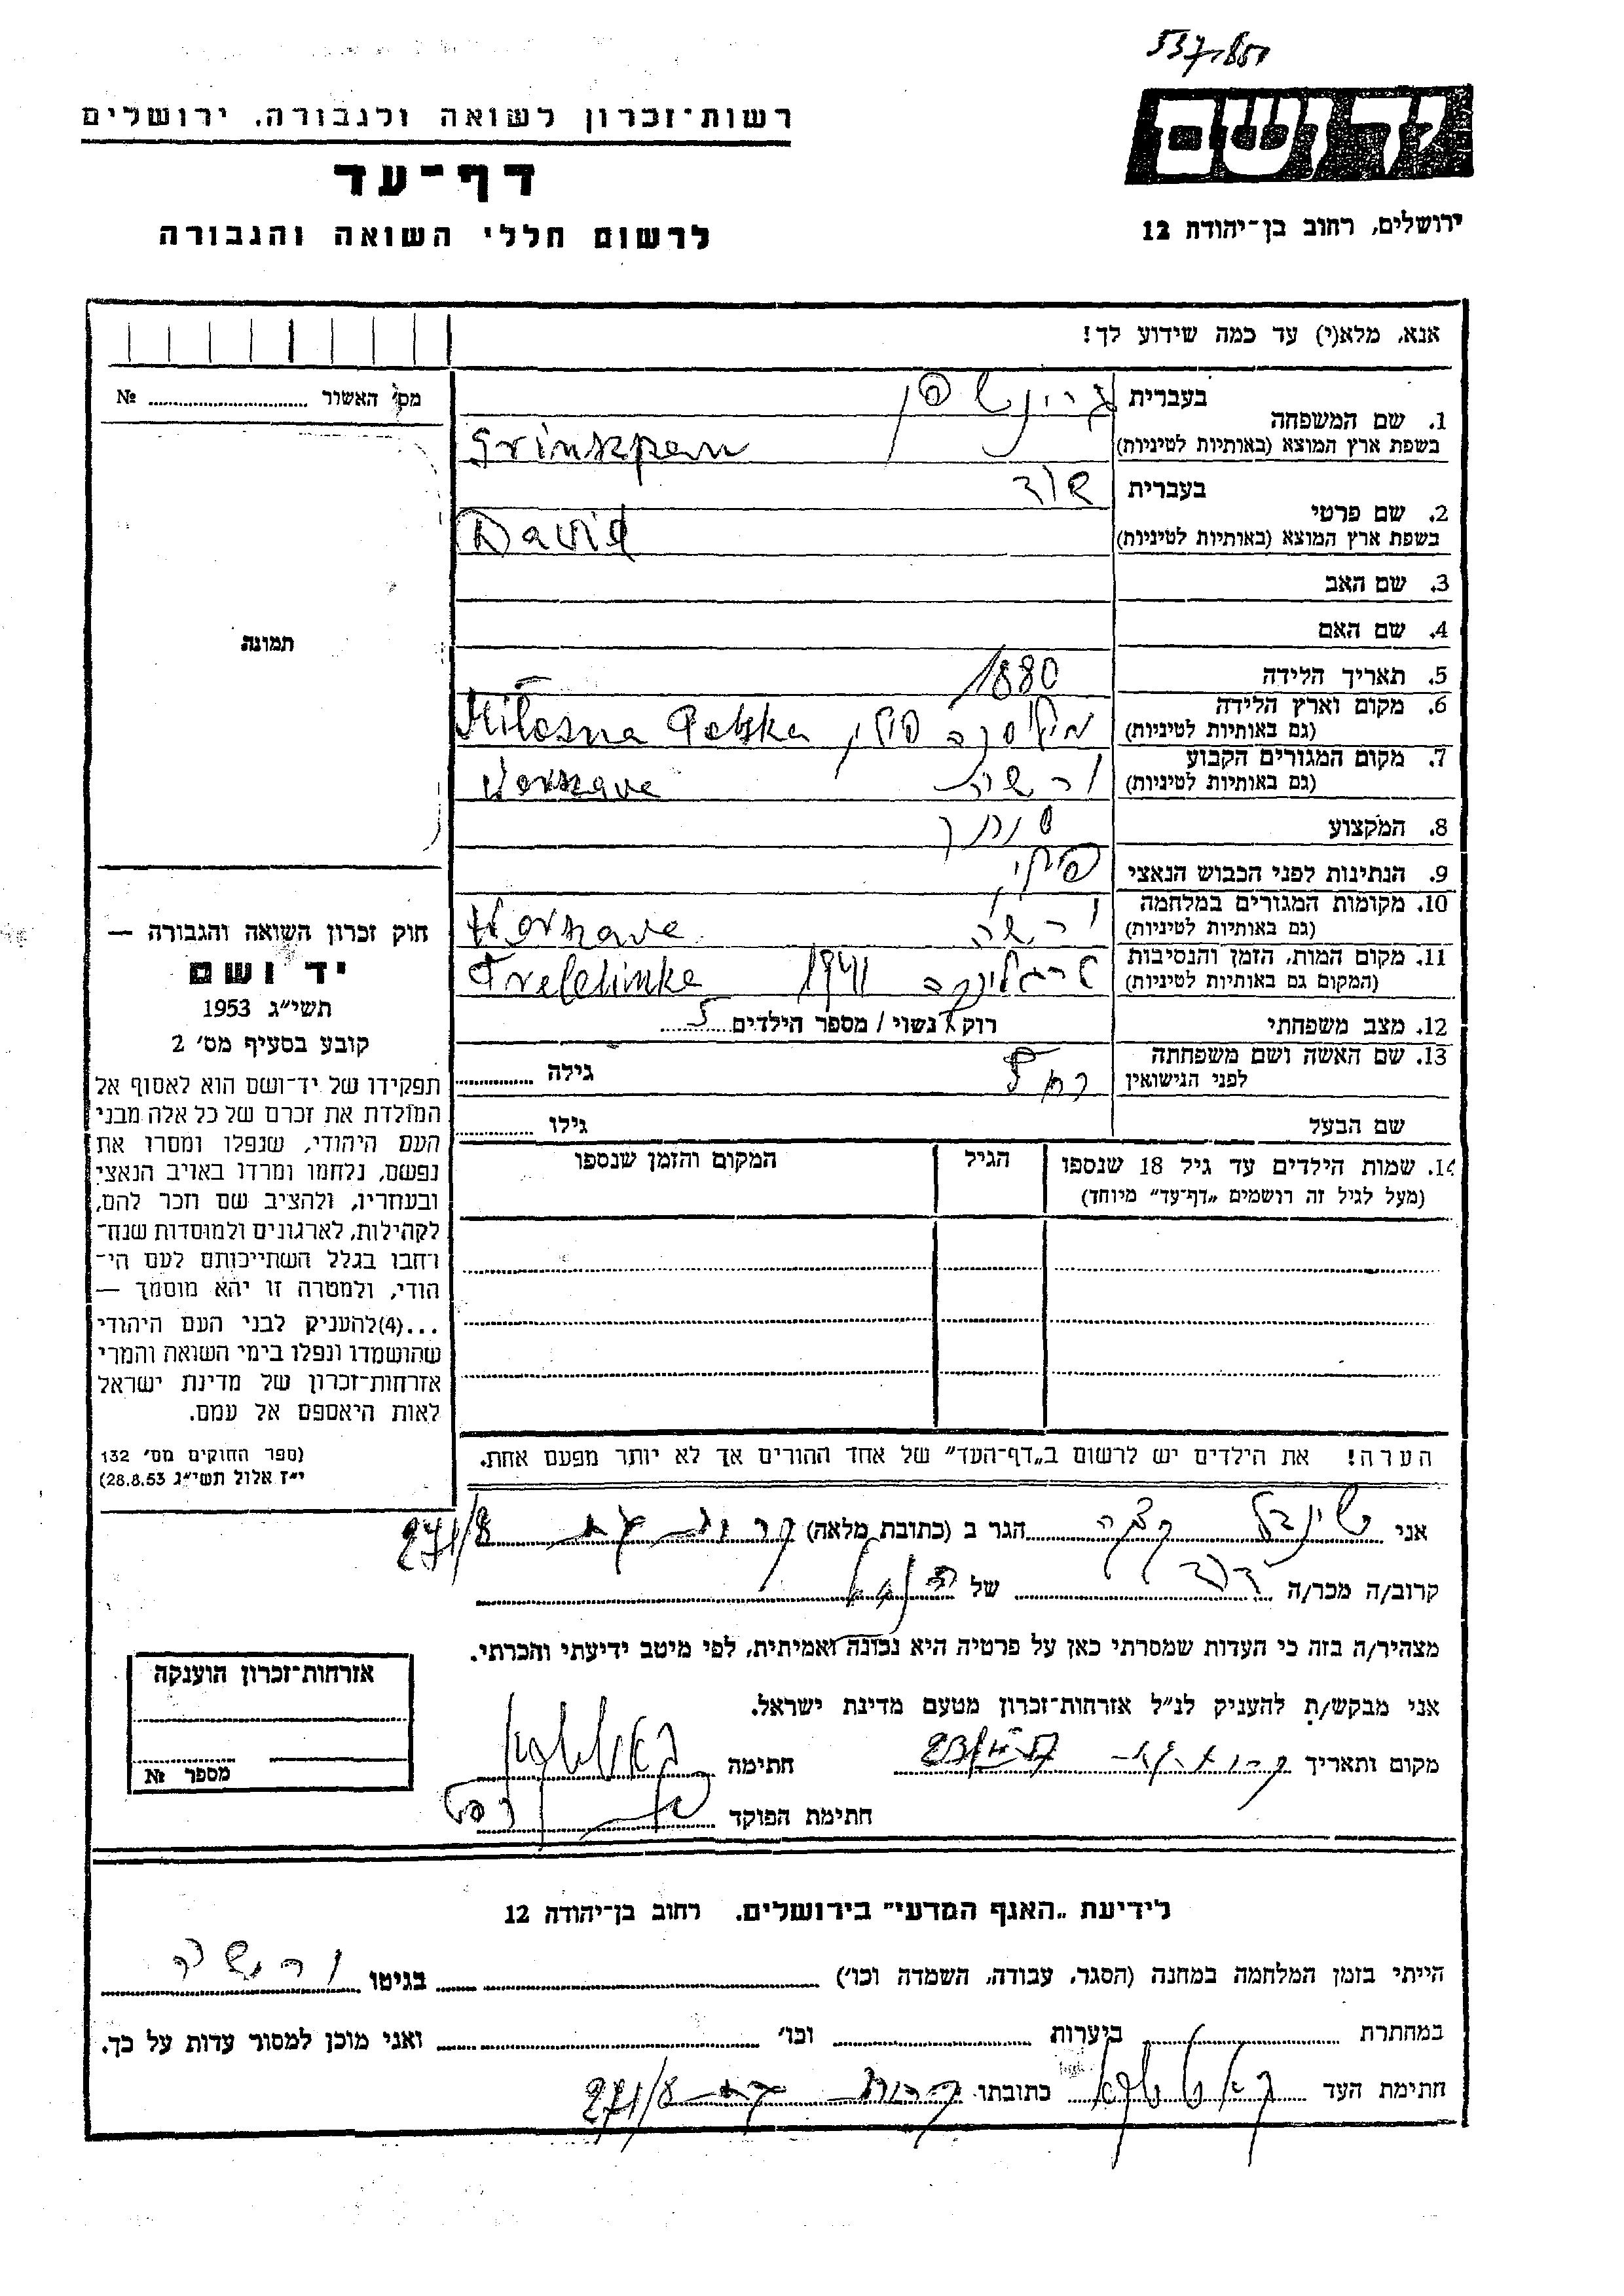 537,851
רשות-זכרון לשואה ולגבורה, ירושלים
דף-עד
לרשום חללי השואה והגבורה
יד ושם
ירושלים, רחוב בן-יהודה 12
אנא, מלא(י) עד כמה שידוע לך!
1. שם המשפחה
בעברית גרינשפן
בשפת ארץ המוצא (באותיות לטיניות) Grinszpan
2. שם פרטי
בעברית דוד
בשפת ארץ המוצא (באותיות לטיניות) David
3. שם האב
4. שם האם
5. תאריך הלידה 1880
6. מקום וארץ הלידה
(גם באותיות לטיניות) מילוסנה פולין Miłosna Polska
7. מקום המגורים הקבוע
(גם באותיות לטיניות) ורשה Warszawa
8. המקצוע סוחר
9. הנתינות לפני הכבוש הנאצי פולני
10. מקומות המגורים במלחמה
(גם באותיות לטיניות) ורשה Warszawa
11. מקום המות, הזמן והנסיבות
(המקום גם באותיות לטיניות) טרבלינקה 1941 Treblinka
12. מצב משפחתי רוק / נשוי / מספר הילדים 5
13. שם האשה ושם משפחתה
לפני הנישואין רחל גילה
שם הבעל גילו
14. שמות הילדים עד גיל 18 שנספו הגיל המקום והזמן שנספו
(מעל לגיל זה רושמים „דף-עד" מיוחד)
הערה! את הילדים יש לרשום ב„דף-העד" של אחד ההורים אך לא יותר מפעם אחת.
מס' האשור №
תמונה
חוק זכרון השואה והגבורה —
יד ושם
תשי"ג 1953
קובע בסעיף מס' 2
תפקידו של יד-ושם הוא לאסוף אל
המולדת את זכרם של כל אלה מבני
העם היהודי, שנפלו ומסרו את
נפשם, נלחמו ומרדו באויב הנאצי
ובעוזריו, ולהציב שם וזכר להם,
לקהילות, לארגונים ולמוסדות שנח-
רחבו בגלל השתייכותם לעם הי-
הודי, ולמטרה זו יהא מוסמך —
...(4) להעניק לבני העם היהודי
שהושמדו ונפלו בימי השואה והמרי
אזרחות-זכרון של מדינת ישראל
לאות היאספם אל עמם.
(ספר החוקים מס' 132
י"ז אלול תשי"ג 28.8.53)
אני הגר ב (כתובת מלאה) 271/8
קרוב/ה מכר/ה של
מצהיר/ה בזה כי העדות שמסרתי כאן על פרטיה היא נכונה ואמיתית, לפי מיטב ידיעתי והכרתי.
אני מבקש/ת להעניק לנ"ל אזרחות-זכרון מטעם מדינת ישראל.
מקום ותאריך חתימה
חתימת הפוקד
אזרחות-זכרון הוענקה
מספר №
לידיעת „האגף המדעי" בירושלים. רחוב בן-יהודה 12
הייתי בזמן המלחמה במחנה (הסגר, עבודה, השמדה וכו') בגיטו ורשה
במחתרת ביערות וכו' ואני מוכן למסור עדות על כך.
חתימת העד כתובתו 271/8